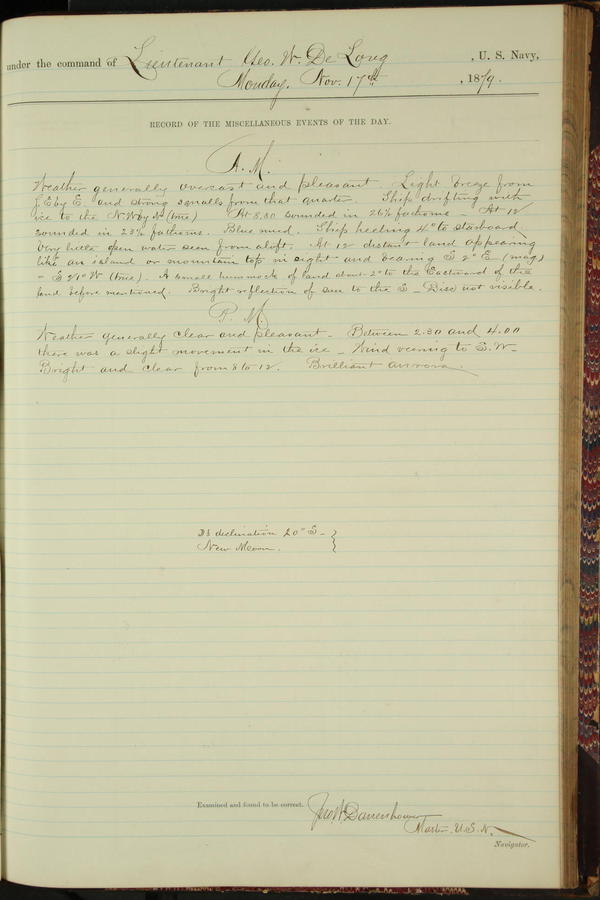 under the command of Lieutenant Geo. W. De Long, U. S. Navy,
Monday, Nov. 17th, 1879.
RECORD OF THE MISCELLANEOUS EVENTS OF THE DAY.
A. M.
Weather generally overcast and pleasant. Light breeze from
E by E. and strong squalls from that quarter. Ship drifting with
ice to the N.W by N (true) At 8.30 sounded in 26½ fathoms - At 12
sounded in 28½ fathoms. Blue mud. Ship heeling 4° to starboard
Very little open water seen from aloft. At 12 distant land appearing
like an island or mountain top in sight and bearing S 2° E (mag)
- S 21° W (true). A small hummock of land about 2° to the Eastward of the
land before mentioned. Bright reflection of sun to the S - Disc not visible.
P. M.
Weather generally clear and pleasant - Between 2.30 and 4.00
there was a slight movement in the ice - Wind veering to S. W -
Bright and clear from 8 to 12. Brilliant aurora.
declination 20° S -
New Moon.
Examined and found to be correct.
Jno W. Danenhower
Master, U.S.N.
Navigator.